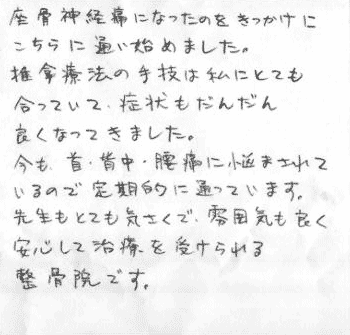 座骨神経痛になったのをきっかけに
こちらに通い始めました。
推拿療法の手技は私にとても
合っていて、症状もだんだん
良くなってきました。
今も、首・背中・腰痛に悩まされて
いるので定期的に通っています。
先生もとても気さくで、雰囲気も良く
安心して治療を受けられる
整骨院です。